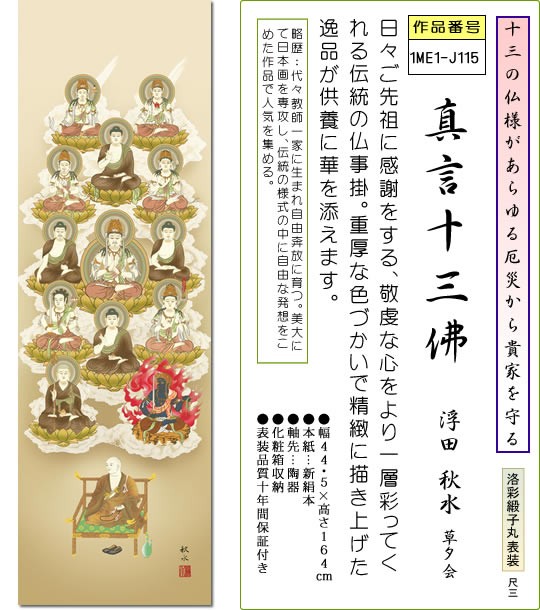 十三の仏様があらゆる厄災から貴家を守る
洛彩緞子丸表装
尺三
作品番号
1ME1-J115
真言十三佛
浮田 秋水 草夕会
日々ご先祖に感謝をする、敬虔な心をより一層彩ってく
れる伝統の仏事掛。重厚な色づかいで精緻に描き上げた
逸品が供養に華を添えます。
略歴：代々教師一家に生まれ自由奔放に育つ。美大に
て日本画を専攻し、伝統の様式の中に自由な発想をこ
めた作品で人気を集める。
●幅44・5×高さ164cm
●本紙…新絹本
●軸先…陶器
●化粧箱収納
●表装品質十年間保証付き
秋水